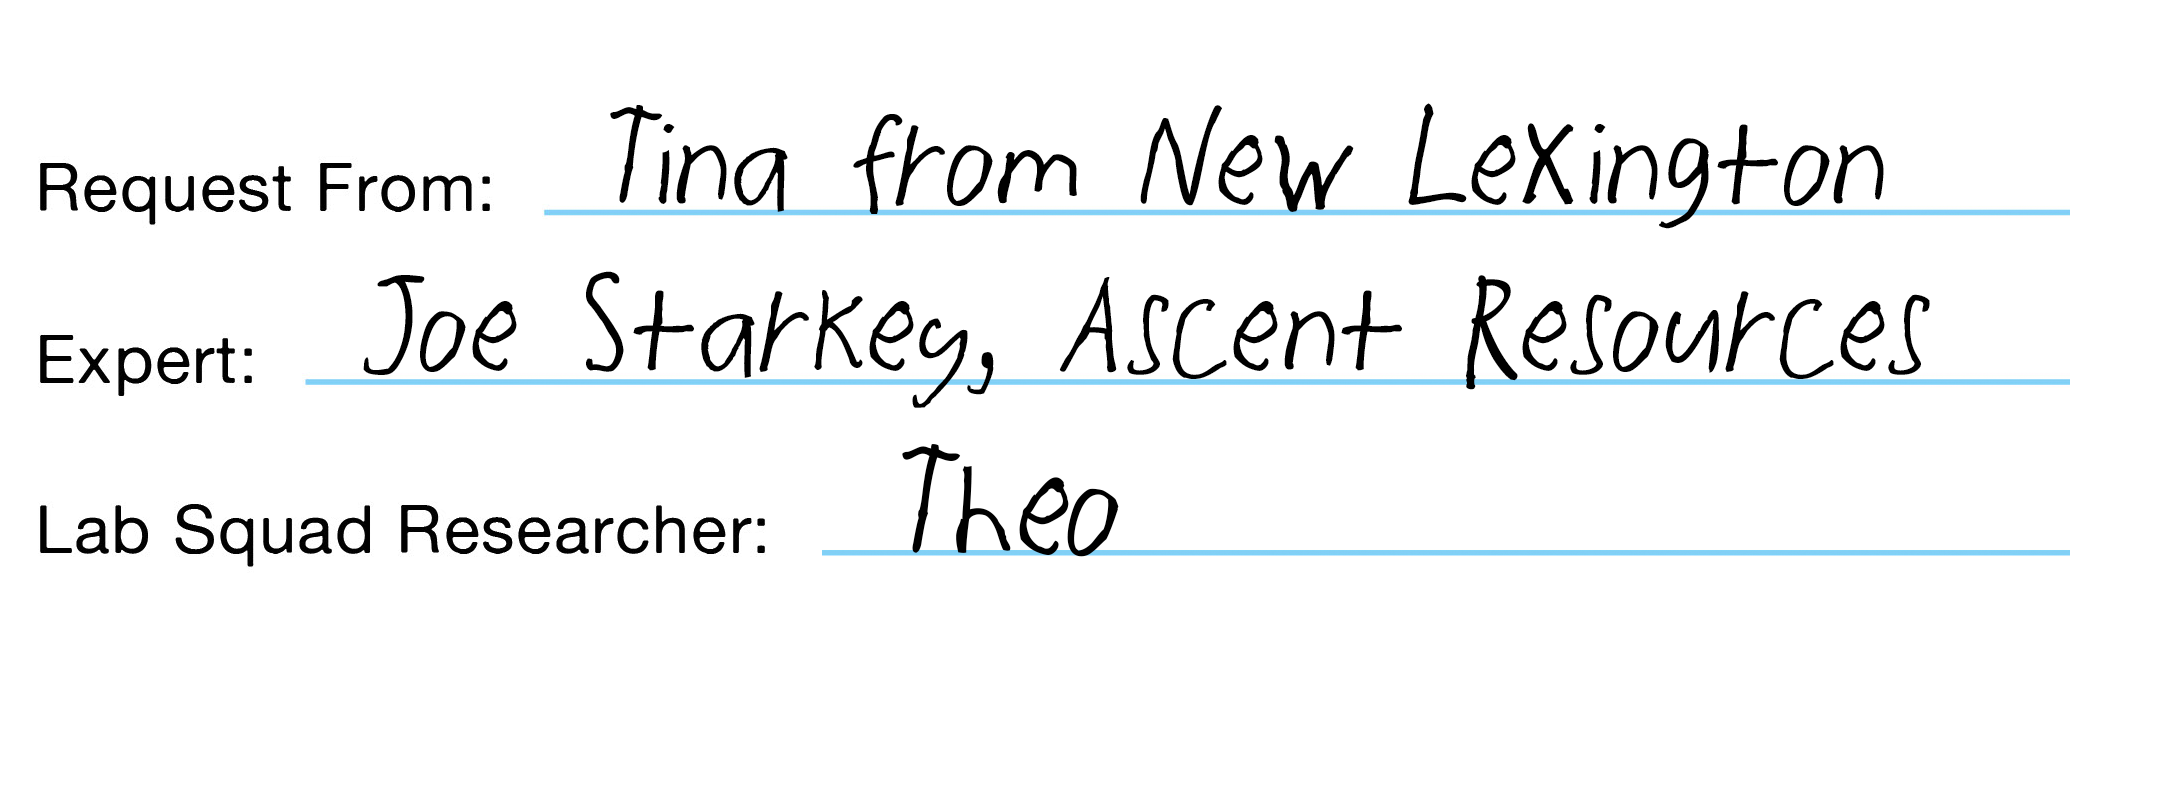 Request From: Tina from New Lexington
Expert: Joe Starkey, Ascent Resources
Lab Squad Researcher: Theo